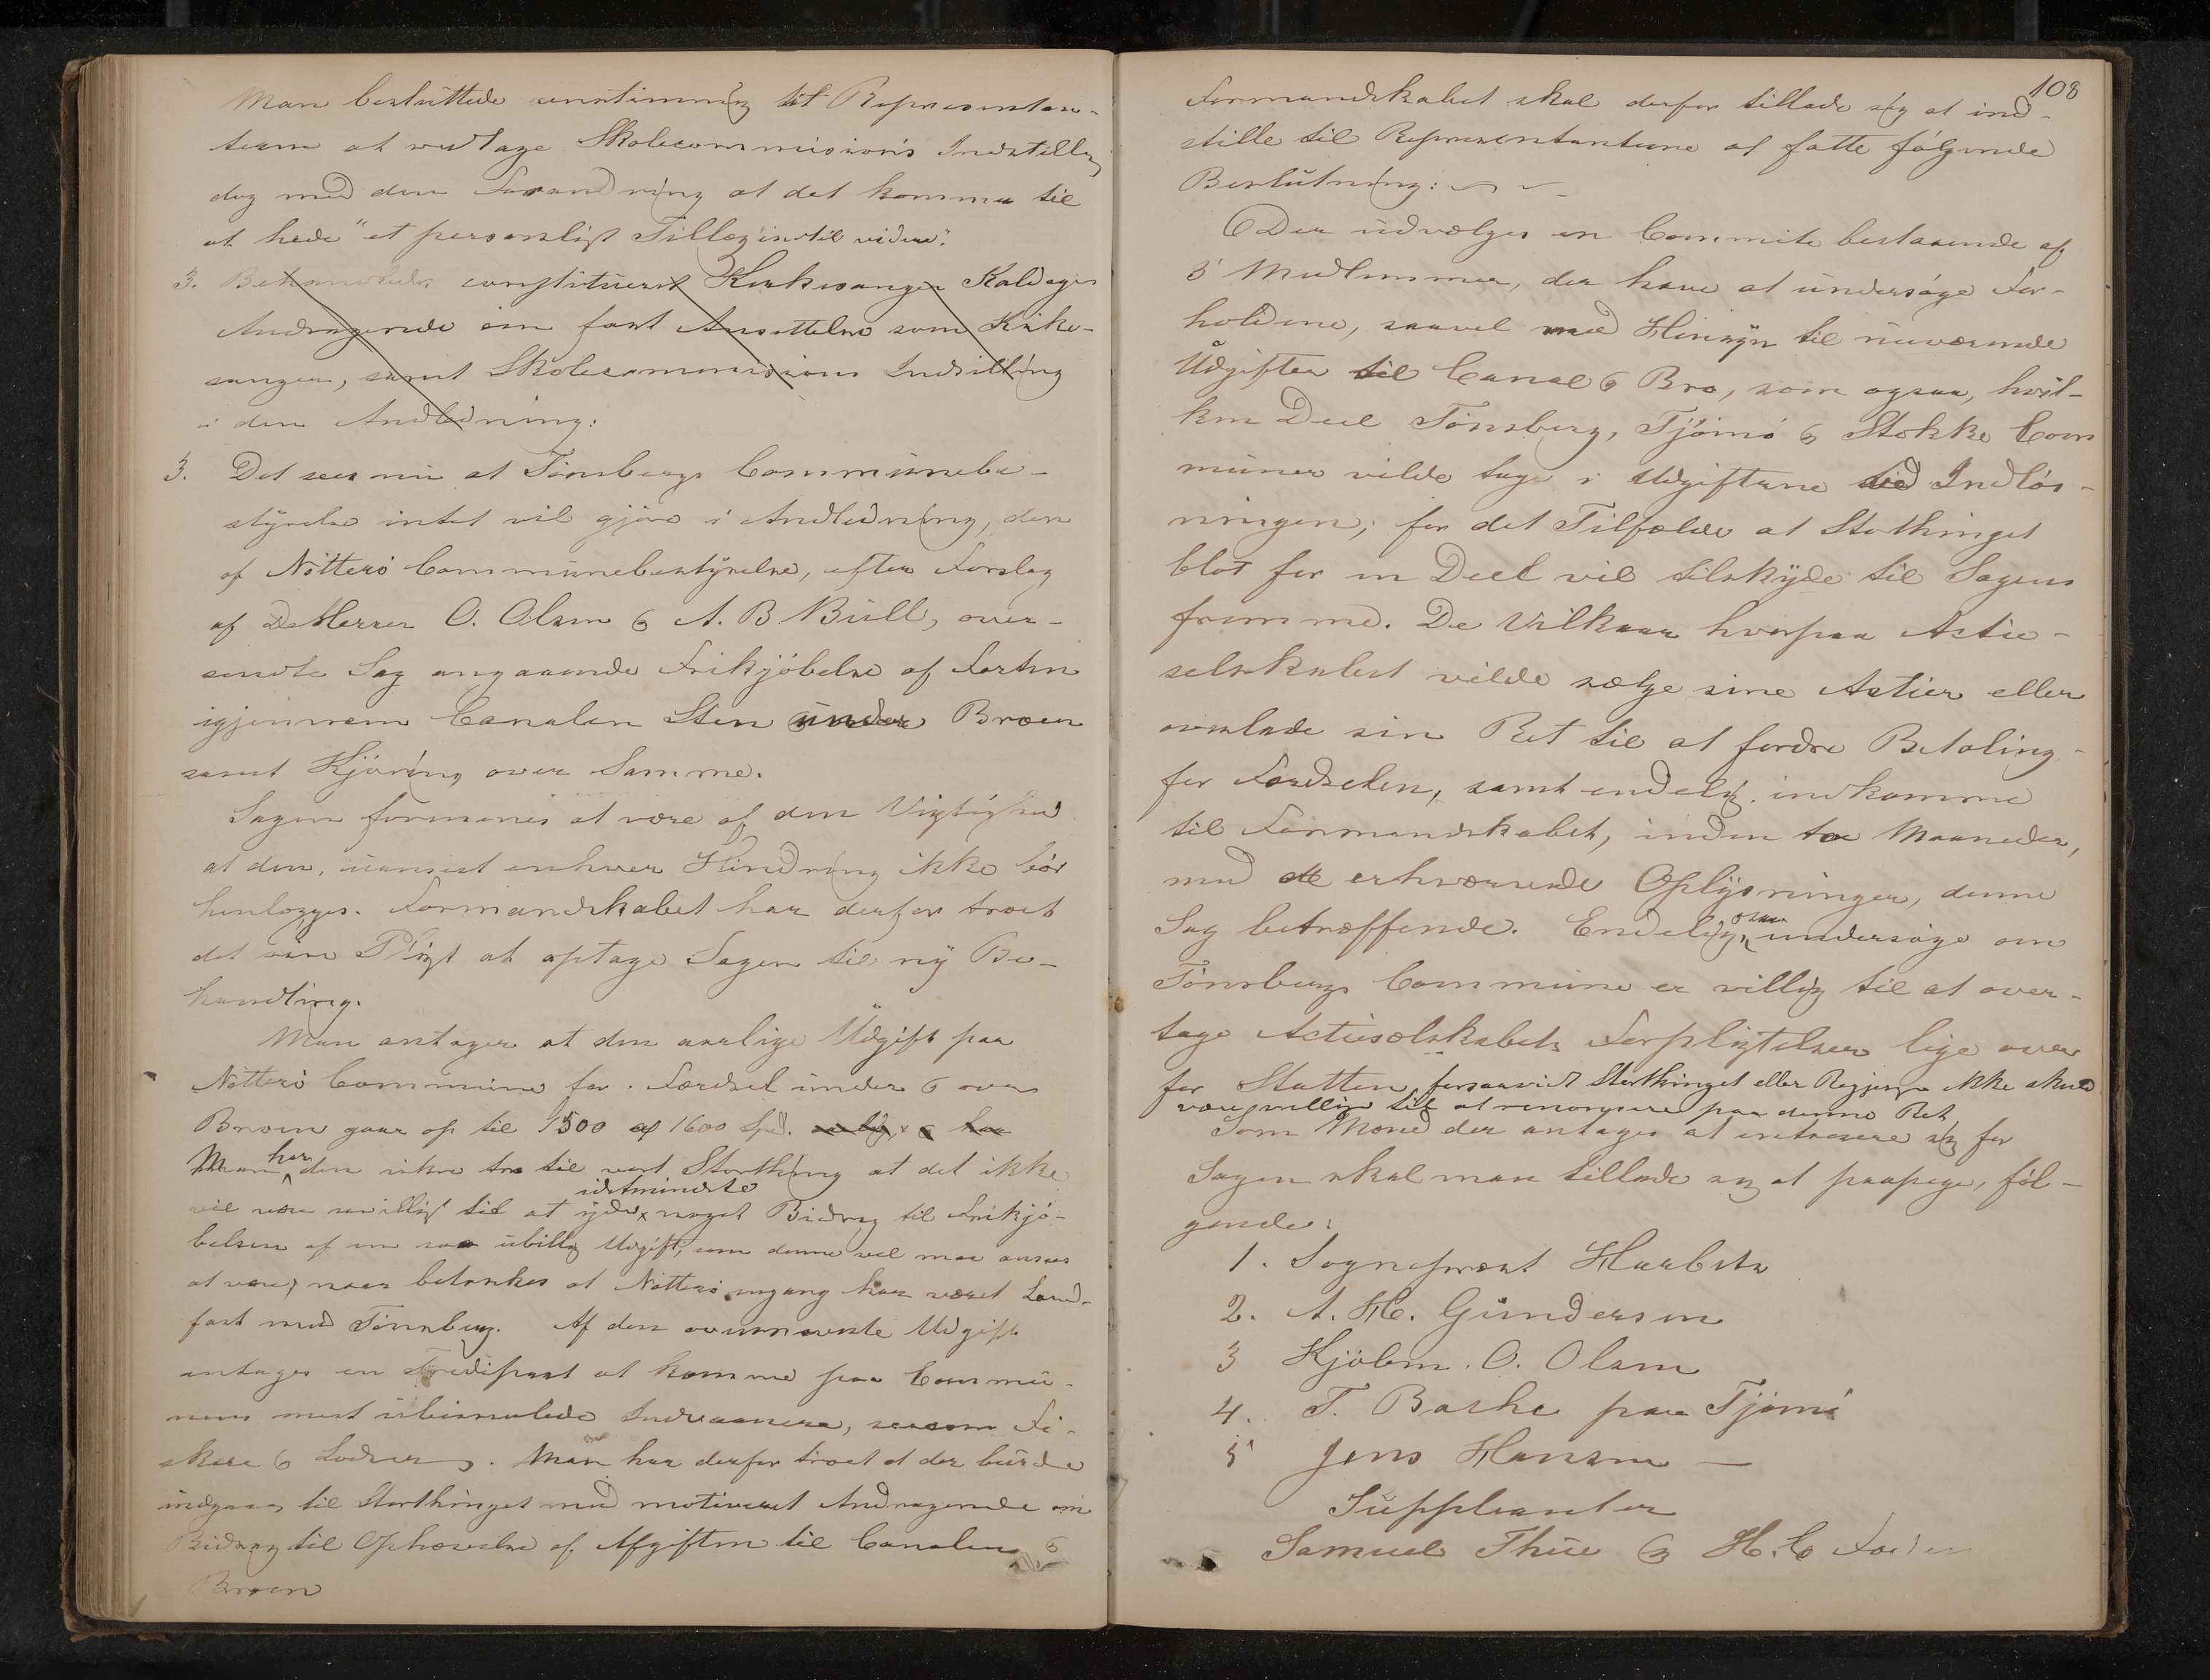 Man besluttede eenstimmig til Repræsentan-
terne at vedtage Skolecommisionens Indstilling
dog med den Forandring at det kommer til
at hede "et personligt Tillæg indtil videre".
3. Behandledes constitueret Kirkesanger Kaldager
Andragende om fast Ansættelse som Kirke-
sanger, samt Skolecommisions Indstilling
i den Andledning:
3. Det sees nu at Tönsbergs Communebe-
styrelse intet vil gjöre i Andledning, den
af Nötterö Communebestyrelse, efter Forslag
af De Herrer O. Olsen & A. B Bull, over-
sendte Sag angaaende Frikjöbelse af Farten
igjennem Canalen Sten under Broen
samt Kjöring over Samme.
Sagen formenes at være af den Vigtighed
at den, uanseet enhver Hindring ikke bör
henlægges. Formandskabet har derfor troet
det sin Pligt at optage Sagen til ny Be-
handling.
Man antager at den aarlige Udgift paa
Nötterö Commune for Færdsel under & over
Broen gaar op til 1500 a 1600 Spd.
Man har den sikre tro til vort Storthing at det ikke
vil være uvilligt til at yde idetmindste noget Bidrag til Frikjö-
belsen af en saa ubillig Udgift, som denne vel maa ansees
at være, naar betænkes at Nötterö engang har været Land-
fast med Tönsberg. Af den ovennævnte Udgift
antages en Trediepart at komme paa Commu-
nens mest ubemidlede Indvaanere, saasom Fi-
skere & Lodser. Man har derfor troet at der burde
indgaaes til Storthinget med motiveret Andragende om
Bidrag til Ophævelse af Afgiften til Canalen &
Broen
108
Formandskabet skal derfor tillade sig at ind-
stille til Repræsentanterne at fatte fölgende
Beslutning:
Der udvælges en Committe bestaaende af
5 Medlemmer, der have at undersöge For-
holdene, saavel med Hinsyn til nuværende
Udgifter til Canal & Bro, som ogsaa, hvil-
ken Deel Tönsberg, Tjömö & Stokke Com
muner vilde tage i Udgifterne ved Indlös-
ningen, for det Tilfælde at Storthinget
blot for en Deel vil tilskyde til Sagens
fremme. De Vilkaar hvorpaa Actie-
selskabet vilde sælge sine Actier eller
overlade sin Ret til at fordre Betaling
for Færdselen, samt endelig indkomme
til Formandskabet, inden to Maaneder,
med de erhvervende Oplysninger, denne
Sag betræffende. Endelig ogsaa undersöge om
Tönsbergs Commune er villig til at over-
tage Actieselskabets Forpligtelser lige over
for Statten, forsaavidt Storthinget eller Regjeringen ikke skulde
være villig til at renoncere paa denne Ret
Som Mænd der antages at intresere sig for
Sagen skal man tillade sig at paapege, föl-
gende:
1. Sognepræst Haarbster
2. A. H. Gundersen
3 Kjöbm. O. Olsen
4. T. Bache paa Tjömö
5 Jens Hansen —
Suppleanter
Samuel Thue & H. C